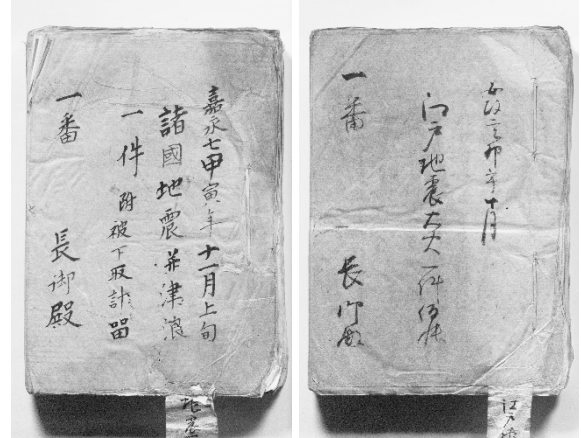 嘉永七甲寅年十一月上旬
諸國地震并津浪
一件 附被下取計留
一番 長御殿
地震
安政二卯年十月
江戸地震大火一件
一番 長御殿
江戸